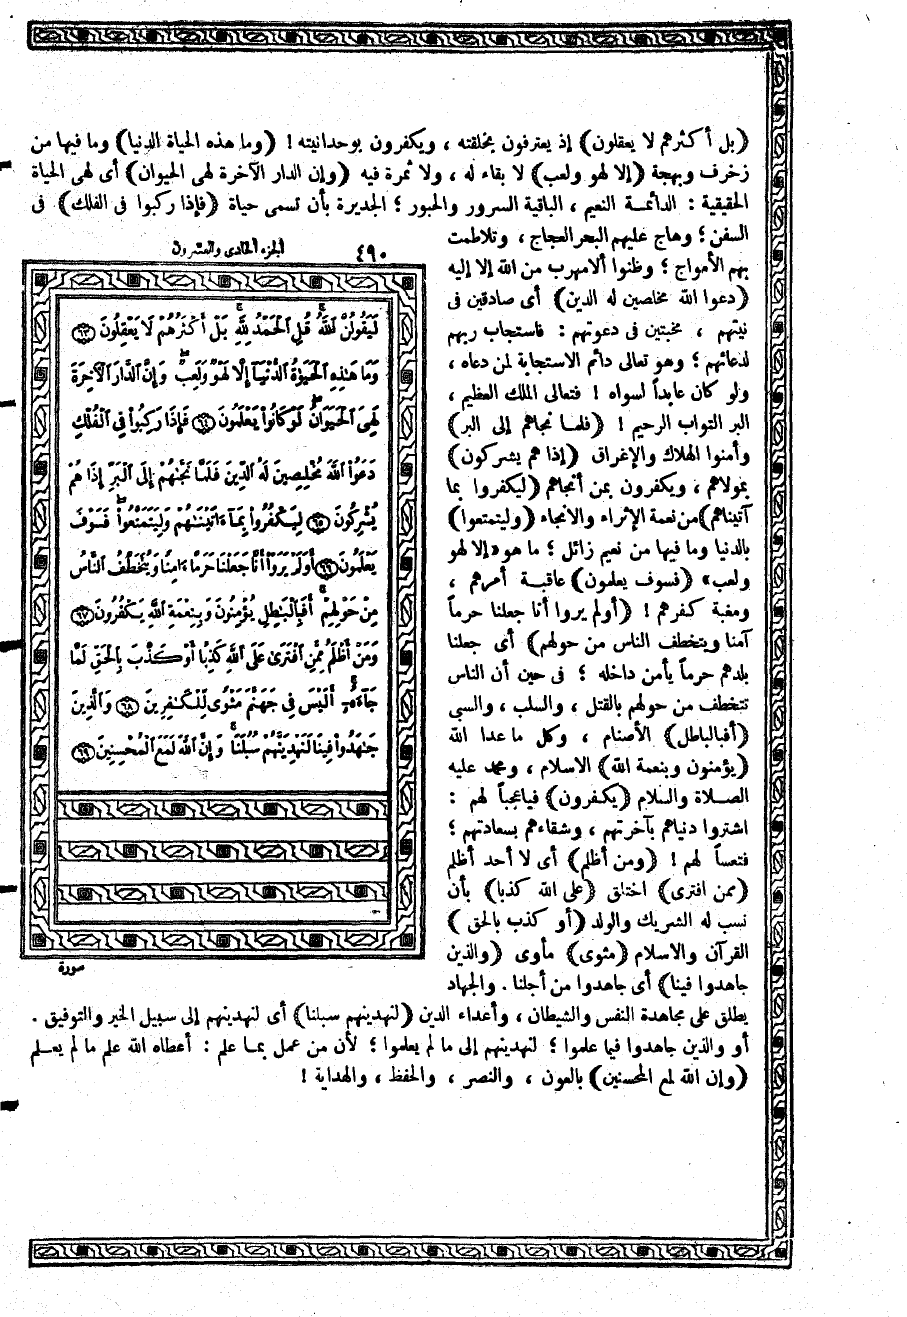 (بل أكثرهم لا يعقلون) إذ يعترفون بخلقته ، ويكفرون بوحدانيته ! (وما هذه الحياة الدنيا) وما فيها من
زخرف وبهجة (إلا لهو ولعب) لا بقاء له ، ولا ثمرة فيه (وإن الدار الآخرة لهى الحيوان) أى لهى الحياة
الحقيقية : الدائمة النعيم ، الباقية السرور والحبور ؛ الجديرة بأن تسمى حياة (فإذا ركبوا فى الفلك) فى
السفن ؛ وهاج عليهم البحر العجاج ، وتلاطمت
بهم الأمواج ؛ وظنوا ألامهرب من الله إلا إليه
(دعوا الله مخلصين له الدين) أى صادقين فى
نيتهم ، مخبتين فى دعوتهم : فاستجاب ربهم
لدعائهم ؛ وهو تعالى دائم الاستجابة لمن دعاه ،
ولو كان عابداً لسواه ! فتعالى الملك العظيم ،
البر التواب الرحيم ! (فلما نجاهم إلى البر)
وأمنوا الهلاك والإغراق (إذا هم يشركون)
بمولاهم ، ويكفرون بمن أنجاهم (ليكفروا بما
آتيناهم) من نعمة الإثراء والانجاء (وليتمتعوا)
بالدنيا وما فيها من نعيم زائل ؛ ما هو «إلا لهو
ولعب» (فسوف يعلمون) عاقبة أمرهم ،
ومغبة كفرهم ! (أولم يروا أنا جعلنا حرماً
آمنا ويتخطف الناس من حولهم) أى جعلنا
بلدهم حرماً يأمن داخله ؛ فى حين أن الناس
تتخطف من حولهم بالقتل ، والسلب ، والسبى
(أفبالباطل) الأصنام ، وكل ما عدا الله
(يؤمنون وبنعمة الله) الاسلام ، ومحمد عليه
الصلاة والسلام (يكفرون) فياعجباً لهم :
اشتروا دنياهم بآخرتهم ، وشقاءهم بسعادتهم ؛
فتعساً لهم ! (ومن أظلم) أى لا أحد أظلم
(ممن افترى) اختلق (على الله كذبا) بأن
نسب له الشريك والولد (أو كذب بالحق)
القرآن والاسلام (مثوى) مأوى (والذين
جاهدوا فينا) أى جاهدوا من أجلنا . والجهاد
يطلق على مجاهدة النفس والشيطان ، وأعداء الدين (لنهدينهم سبلنا) أى لنهدينهم إلى سبيل الخير والتوفيق .
أو والذين جاهدوا فيما علموا ؛ لنهدينهم إلى ما لم يعلموا ؛ لأن من عمل بما علم : أعطاه الله علم ما لم يعلم
(وإن الله لمع المحسنين) بالعون ، والنصر ، والحفظ ، والهداية !
٤٩٠ الجزء الحادى والعشرون
لَيَقُولُنَّ ٱللَّهُ قُلِ ٱلْحَمْدُ لِلَّهِ بَلْ أَكْثَرُهُمْ لَا يَعْقِلُونَ ٦٣
وَمَا هَٰذِهِ ٱلْحَيَوٰةُ ٱلدُّنْيَآ إِلَّا لَهْوٌ وَلَعِبٌ وَإِنَّ ٱلدَّارَ ٱلْآخِرَةَ
لَهِىَ ٱلْحَيَوَانُ لَوْ كَانُوا۟ يَعْلَمُونَ ٦٤ فَإِذَا رَكِبُوا۟ فِى ٱلْفُلْكِ
دَعَوُا۟ ٱللَّهَ مُخْلِصِينَ لَهُ ٱلدِّينَ فَلَمَّا نَجَّىٰهُمْ إِلَى ٱلْبَرِّ إِذَا هُمْ
يُشْرِكُونَ ٦٥ لِيَكْفُرُوا۟ بِمَآ ءَاتَيْنَٰهُمْ وَلِيَتَمَتَّعُوا۟ فَسَوْفَ
يَعْلَمُونَ ٦٦ أَوَلَمْ يَرَوْا۟ أَنَّا جَعَلْنَا حَرَمًا ءَامِنًا وَيُتَخَطَّفُ ٱلنَّاسُ
مِنْ حَوْلِهِمْ أَفَبِٱلْبَٰطِلِ يُؤْمِنُونَ وَبِنِعْمَةِ ٱللَّهِ يَكْفُرُونَ ٦٧
وَمَنْ أَظْلَمُ مِمَّنِ ٱفْتَرَىٰ عَلَى ٱللَّهِ كَذِبًا أَوْ كَذَّبَ بِٱلْحَقِّ لَمَّا
جَآءَهُۥٓ أَلَيْسَ فِى جَهَنَّمَ مَثْوًى لِّلْكَٰفِرِينَ ٦٨ وَٱلَّذِينَ
جَٰهَدُوا۟ فِينَا لَنَهْدِيَنَّهُمْ سُبُلَنَا وَإِنَّ ٱللَّهَ لَمَعَ ٱلْمُحْسِنِينَ ٦٩
سورة